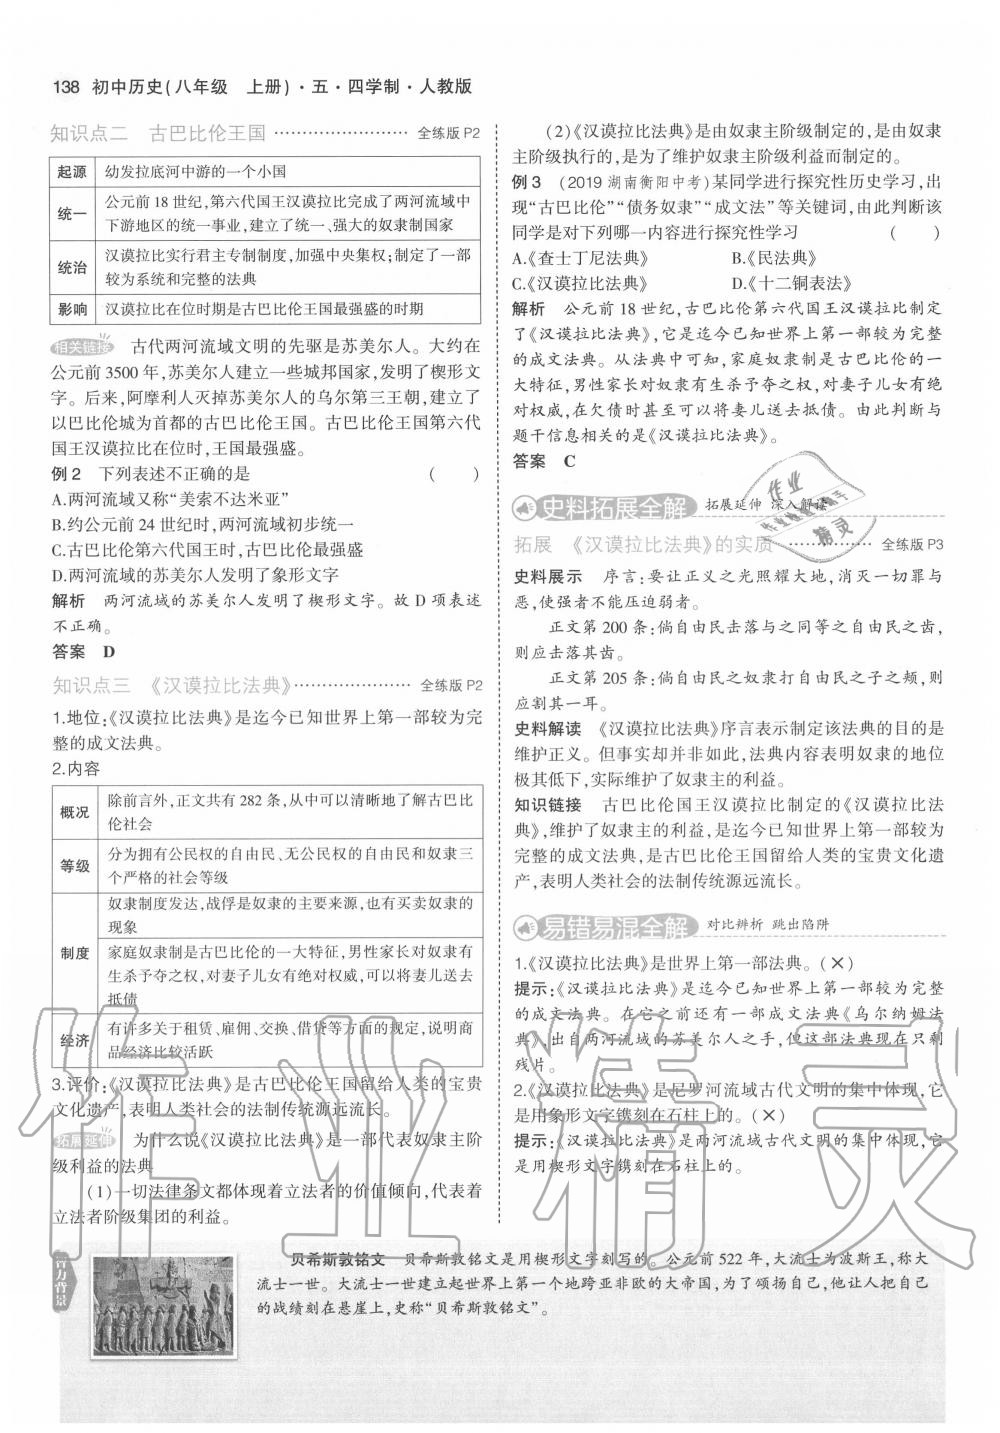 138 初中历史(八年级 上册)·五·四学制·人教版
知识点二 古巴比伦王国 ························ 全练版 P2
起源 幼发拉底河中游的一个小国
统一 公元前 18 世纪,第六代国王汉谟拉比完成了两河流域中
下游地区的统一事业,建立了统一、强大的奴隶制国家
统治 汉谟拉比实行君主专制制度,加强中央集权;制定了一部
较为系统和完整的法典
影响 汉谟拉比在位时期是古巴比伦王国最强盛的时期
相关链接 古代两河流域文明的先驱是苏美尔人。大约在
公元前 3500 年,苏美尔人建立一些城邦国家,发明了楔形文
字。后来,阿摩利人灭掉苏美尔人的乌尔第三王朝,建立了
以巴比伦城为首都的古巴比伦王国。古巴比伦王国第六代
国王汉谟拉比在位时,王国最强盛。
例 2 下列表述不正确的是 ( )
A.两河流域又称“美索不达米亚”
B.约公元前 24 世纪时,两河流域初步统一
C.古巴比伦王国第六任国王是汉谟拉比
D.两河流域的苏美尔人发明了象形文字
解析 两河流域的苏美尔人发明了楔形文字。故 D 项表述
不正确。
答案 D
知识点三 《汉谟拉比法典》 ····················· 全练版 P2
1.地位:《汉谟拉比法典》是迄今已知世界上第一部较为完
整的成文法典。
2.内容
概况 除前言外,正文共有 282 条,从中可以清晰地了解古巴比
伦社会
等级 分为拥有公民权的自由民、无公民权的自由民和奴隶三
个严格的社会等级
制度 奴隶制度发达,战俘是奴隶的主要来源,也有买卖奴隶的
现象
家庭奴隶制是古巴比伦的一大特征,男性家长对奴隶有
生杀予夺之权,对妻子儿女有绝对权威,可以将妻儿送去
抵债
经济 有许多关于租赁、雇佣、交换、借贷等方面的规定,说明商
品经济比较活跃
3.评价:《汉谟拉比法典》是古巴比伦王国留给人类的宝贵
文化遗产,表明人类社会的法制传统源远流长。
拓展延伸 为什么说《汉谟拉比法典》是一部代表奴隶主阶
级利益的法典
(1)一切法律条文都体现着立法者的价值倾向,代表着
立法者阶级集团的利益。
(2)《汉谟拉比法典》是由奴隶主阶级制定的,是由奴隶
主阶级执行的,是为了维护奴隶主阶级利益而制定的。
例 3 (2019 湖南衡阳中考)某同学进行探究性历史学习,出
现“古巴比伦”“债务奴隶”“成文法”等关键词,由此判断该
同学是对下列哪一内容进行探究性学习 ( )
A.《查士丁尼法典》 B.《民法典》
C.《汉谟拉比法典》 D.《十二铜表法》
解析 公元前 18 世纪,古巴比伦第六代国王汉谟拉比制定
了《汉谟拉比法典》,它是迄今已知世界上第一部较为完整
的成文法典。从法典中可知,家庭奴隶制是古巴比伦的一
大特征,男性家长对奴隶有生杀予夺之权,对妻子儿女有绝
对权威,在欠债时甚至可以将妻儿送去抵债。由此判断与
题干信息相关的是《汉谟拉比法典》。
答案 C
史料拓展全解 拓展延伸 深入解读
拓展 《汉谟拉比法典》的实质 ·············· 全练版 P3
史料展示 序言:要让正义之光照耀大地,消灭一切罪与
恶,使强者不能压迫弱者。
正文第 200 条:倘自由民击落与之同等之自由民之齿,
则应击落其齿。
正文第 205 条:倘自由民之奴隶打自由民之子之颊,则
应割其一耳。
史料解读 《汉谟拉比法典》序言表示制定该法典的目的是
维护正义。但事实却并非如此,法典内容表明奴隶的地位
极其低下,实际维护了奴隶主的利益。
知识链接 古巴比伦国王汉谟拉比制定的《汉谟拉比法
典》,维护了奴隶主的利益,是迄今已知世界上第一部较为
完整的成文法典,是古巴比伦王国留给人类的宝贵文化遗
产,表明人类社会的法制传统源远流长。
易错易混全解 对比辨析 跳出陷阱
1.《汉谟拉比法典》是世界上第一部法典。(×)
提示:《汉谟拉比法典》是迄今已知世界上第一部较为完整
的成文法典。在它之前还有一部成文法典《乌尔纳姆法
典》,出自两河流域的苏美尔人之手,但这部法典现在只剩
残片。
2.《汉谟拉比法典》是尼罗河流域古代文明的集中体现,它
是用象形文字镌刻在石柱上的。(×)
提示:《汉谟拉比法典》是两河流域古代文明的集中体现,它
是用楔形文字镌刻在石柱上的。
智力背景
贝希斯敦铭文 贝希斯敦铭文是用楔形文字刻写的。公元前 522 年,大流士为波斯王,称大
流士一世。大流士一世建立起世界上第一个地跨亚非欧的大帝国,为了颂扬自己,他让人把自己
的战绩刻在悬崖上,史称“贝希斯敦铭文”。
作业精灵